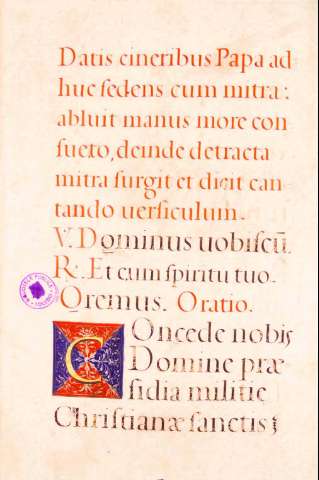 Datis cineribus Papa ad
huc sedens cum mitra:
abluit manus more con
sueto, deinde detracta
mitra surgit et dicit can
tando uersiculum.
V. Dominus uobiscū.
R. Et cum spiritu tuo.
Oremus. Oratio.
Concede nobis
Domine præ
sidia militię
Christianæ sanctis